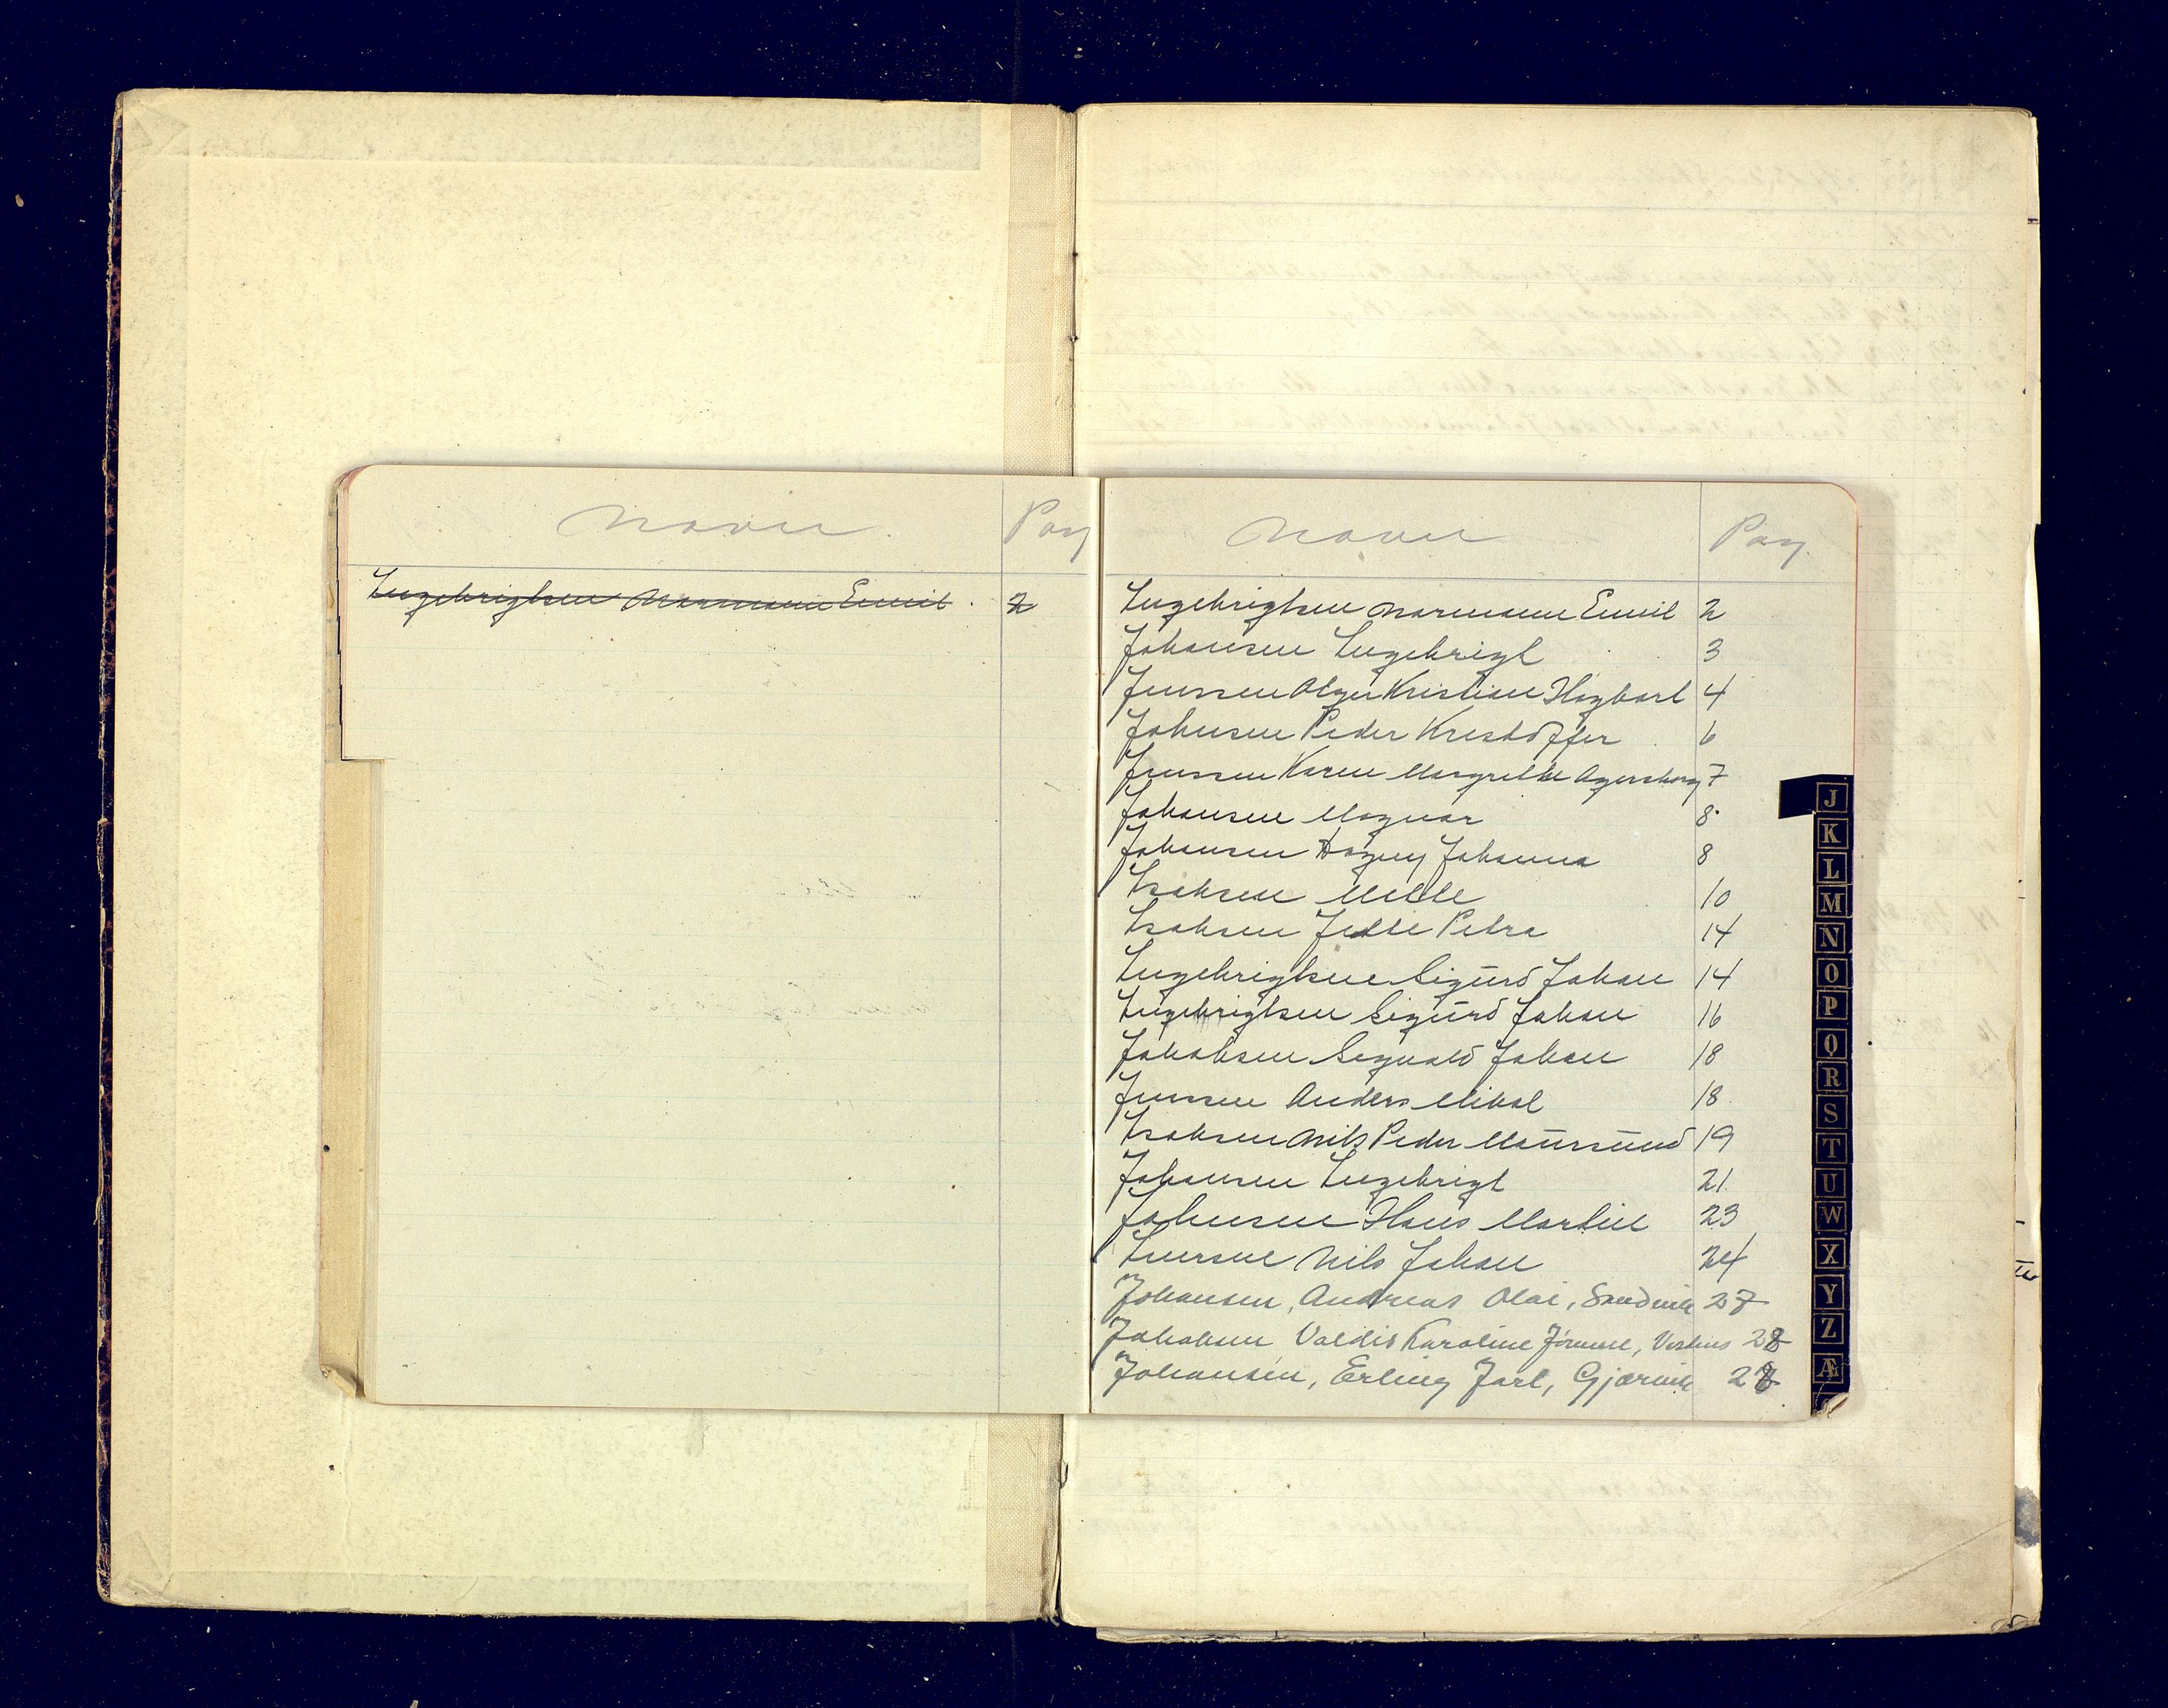 Navn. Pag
Ingebrigtsen Normann Emil. 2
Navn Pag.
Ingebrigtsen Normann Emil 2
Johansen Ingebrigt 3
Jenssen Alger Kristian Hagbart 4
Johnsen Peder Kristoffer 6
Jenssen Karen Margrethe Agersborg 7
Johansen Magnar 8
Johansen Dagny Johanna 8
Isaksen Mette 10
Isaksen Jette Petra 14
Ingebrigtsen Sigurd Johan 14
Ingebrigtsen Sigurd Johan 16
Jakobsen Sigvald Johan 18
Jenssen Anders Mikal 18
Isaksen Nils Peder Maursund 19
Johansen Ingebrigt 21
Johnsen Hans Martin 23
Iversen Nils Johan 24
Johansen, Andreas Olai, Sandvik 27
Jakobsen Valdis Karoline 28
Johansen, Erling Jarl, Gjærvik 28
J
K
L
M
N
O
P
Q
R
S
T
U
W
X
Y
Z
Æ